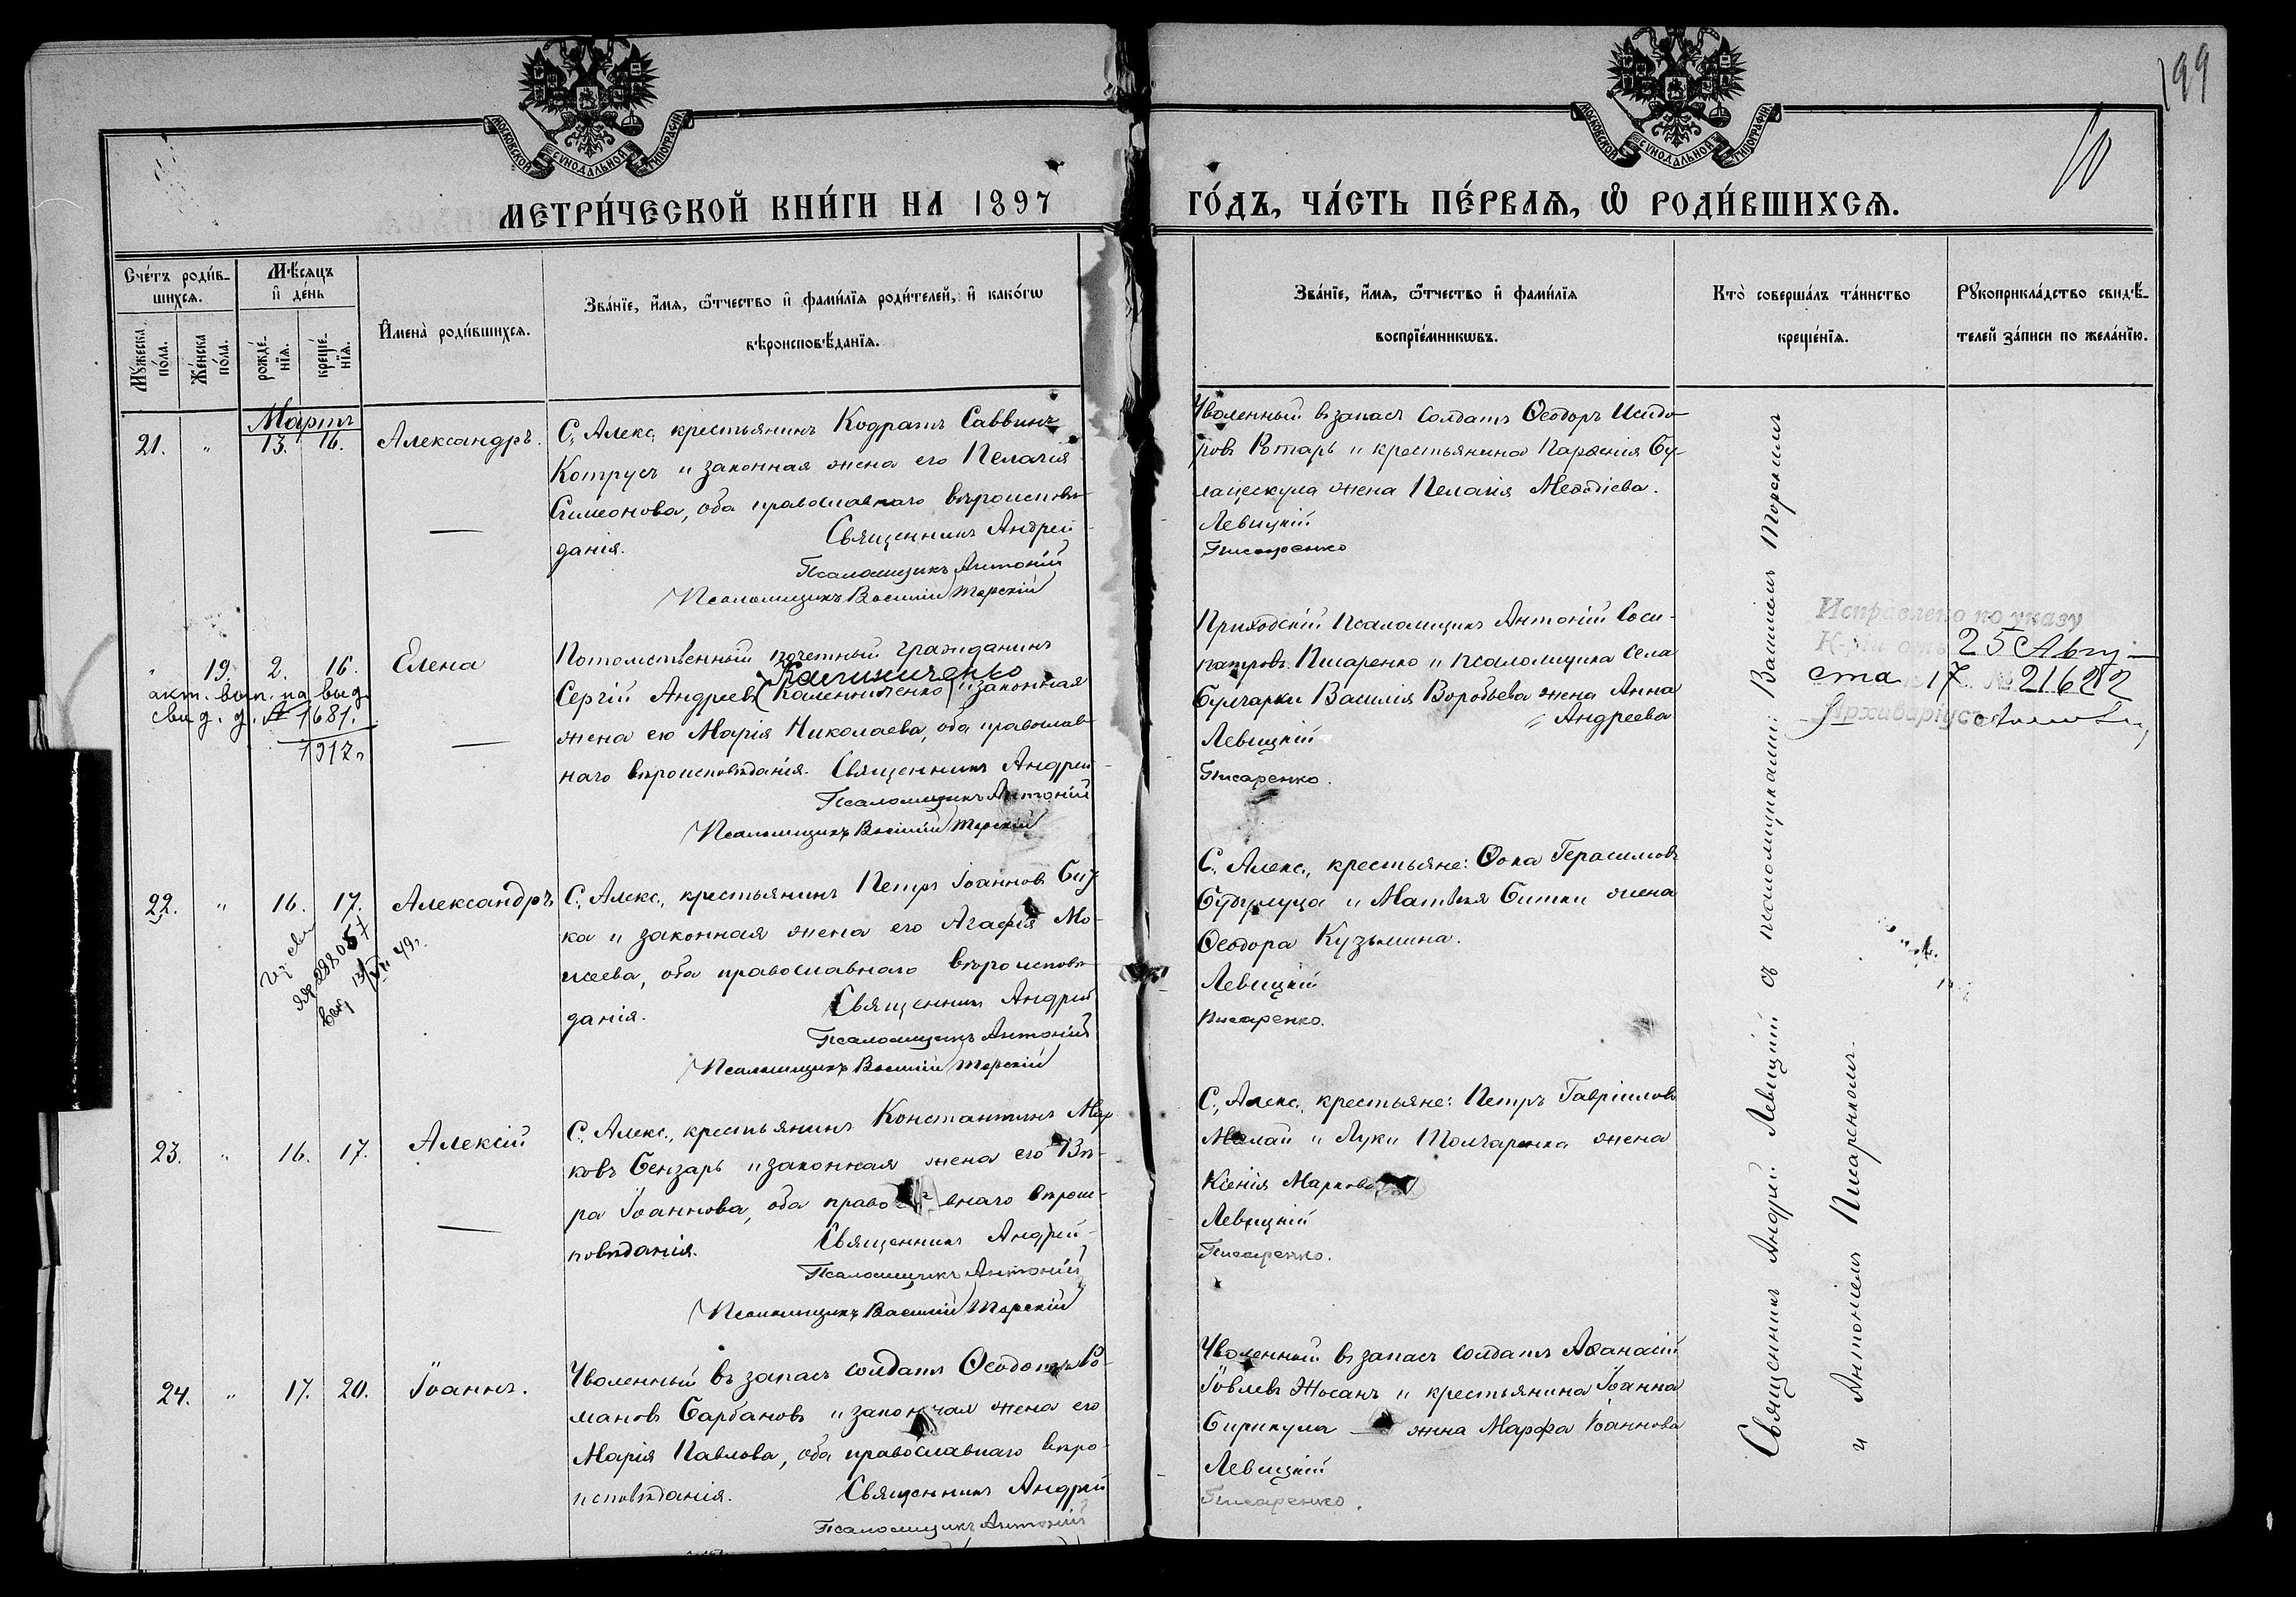 199
10
МОСКОВСКОЙ СѴНОДАЛЬНОЙ ТИПОГРАФІИ
МОСКОВСКОЙ СѴНОДАЛЬНОЙ ТИПОГРАФІИ
МЕТРИ́ЧЕСКОЙ КНИ́ГИ НА 1897
ГО́ДЪ, ЧА́СТЬ ПЕ́РВАѦ, Ѡ РОДИ́ВШИХСѦ.
Сче́тъ роди́в-
шихсѧ.
Му́жеска по́ла.
Же́нска по́ла.
Мѣ́сяцъ
и҆ де́нь
рожде́-
нїѧ.
креще́-
нїѧ.
И҆мена̀ роди́вшихсѧ.
Зва́нїе, и҆́мѧ, ѻ҆́тчество и҆ фами́лїѧ роди́телей, и҆ како́гѡ
вѣроисповѣ́данїѧ.
Зва́нїе, и҆́мѧ, ѻ҆́тчество и҆ фами́лїѧ
воспрїе́мникѡвъ.
Кто̀ соверша́лъ та́инство
креще́нїѧ.
Рꙋкоприкла́дство свидѣ́-
телей за́писи по жела́нїю.
Мартъ
21. " 13. 16. Александръ.
С. Алекс. крестьянинъ Кодратъ Саввинъ
Котрусъ и законная жена его Пелагія
Симеонова, оба православнаго вѣроисповѣ-
данія. Священникъ Андрей
Псаломщикъ Антоній
Псаломщикъ Василій Терскій
Уволенный въ запасъ солдатъ Ѳеодоръ Исидо-
ровъ Ротарь и крестьянина Парѳенія Бу-
лацескула жена Пелагія Меѳодіева.
Левицкій
Писаренко
" 19. 2. 16. Елена
акт. вып. на выд.
свид. д. № 1681.
1917 г.
Потомственный почетный гражданинъ
Калиниченко
Сергій Андреевъ (Калениченко) и законная
жена его Марія Николаева, оба православ-
наго вѣроисповѣданія. Священникъ Андрей
Псаломщикъ Антоній
Псаломщикъ Василій Терскій
Приходскій псаломщикъ Антоній Соси-
патровъ Писаренко и псаломщика села
Булгарки Василія Воробьева жена Анна
Андреева
Левицкій
Писаренко.
Исправлено по указу
К-ріи отъ 25 Авгу-
ста 17 № 21622
Архиваріусъ
22. " 16. 17. Александръ
13/VII 49 г.
С. Алекс., крестьянинъ Петръ Іоанновъ Бит-
ка и законная жена его Агафія Мо-
исеева, оба православнаго вѣроисповѣ-
данія. Священникъ Андрей
Псаломщикъ Антоній
Псаломщикъ Василій Терскій
С. Алекс., крестьяне: Ѳока Герасимовъ
Бубулуца и Матѳея Битки жена
Ѳеодора Кузьмина.
Левицкій
Писаренко.
23. " 16. 17. Алексій
С. Алекс., крестьянинъ Константинъ Мар-
ковъ Бензарь и законная жена его Вѣ-
ра Іоаннова, оба православнаго вѣроис-
повѣданія. Священникъ Андрей
Псаломщикъ Антоній
Псаломщикъ Василій Терскій
С. Алекс., крестьяне: Петръ Гавріиловъ
Малай и Луки Толчаренка жена
Ксенія Маркова
Левицкій
Писаренко.
24. " 17. 20. Іоаннъ.
Уволенный въ запасъ солдатъ Ѳеодотъ Ро-
мановъ Барбановъ и законная жена его
Марія Павлова, оба православнаго вѣро-
исповѣданія. Священникъ Андрей
Псаломщикъ Антоній
Уволенный въ запасъ солдатъ Аѳанасій
Іовлевъ Жосанъ и крестьянина Іоанна
Бирикула жена Марфа Іоаннова
Левицкій
Писаренко.
Священникъ Андрей Левицкій съ псаломщиками: Василіемъ Терскимъ
и Антоніемъ Писаренкомъ.